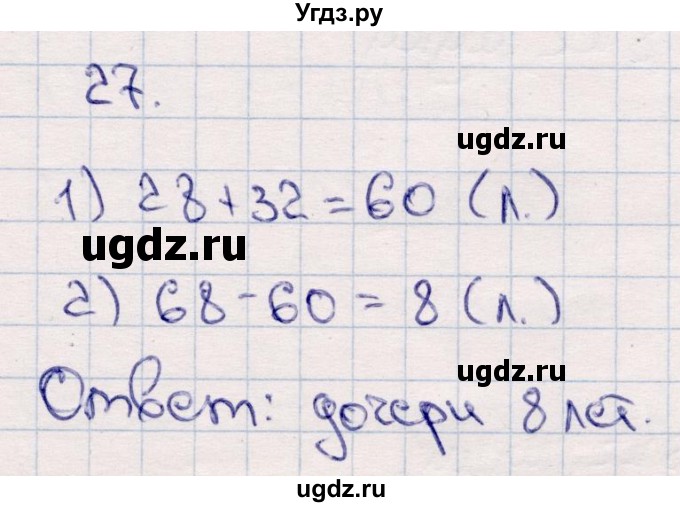 Угдз.ру
27.
ugdz.ru
1) 28+32=60 (л.)
ugdz.ru
2) 68-60=8 (л.)
ugdz.ru
Ответ: дочери 8 лет.
ugdz.ru